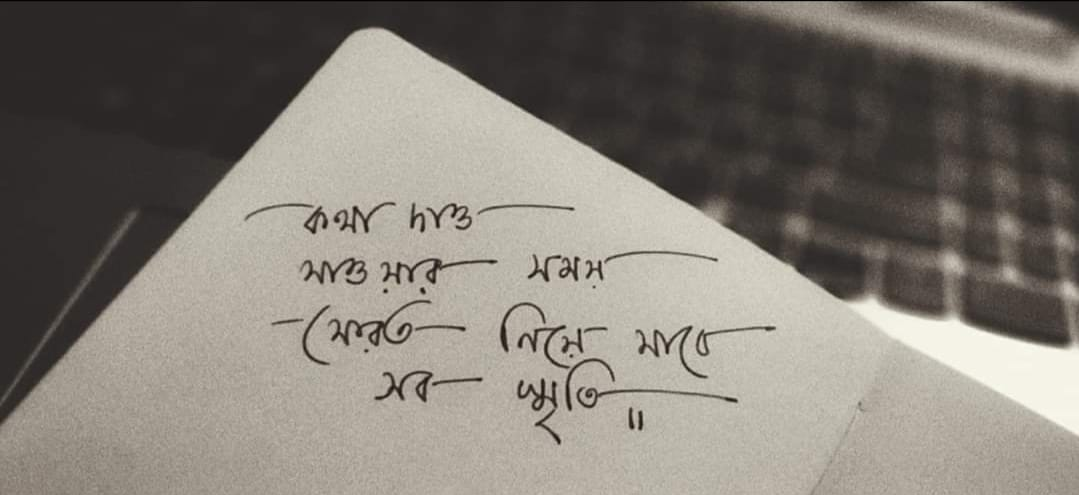 কথা দাও
যাওয়ার সময়
ফেরত নিয়ে যাবে
সব স্মৃতি॥